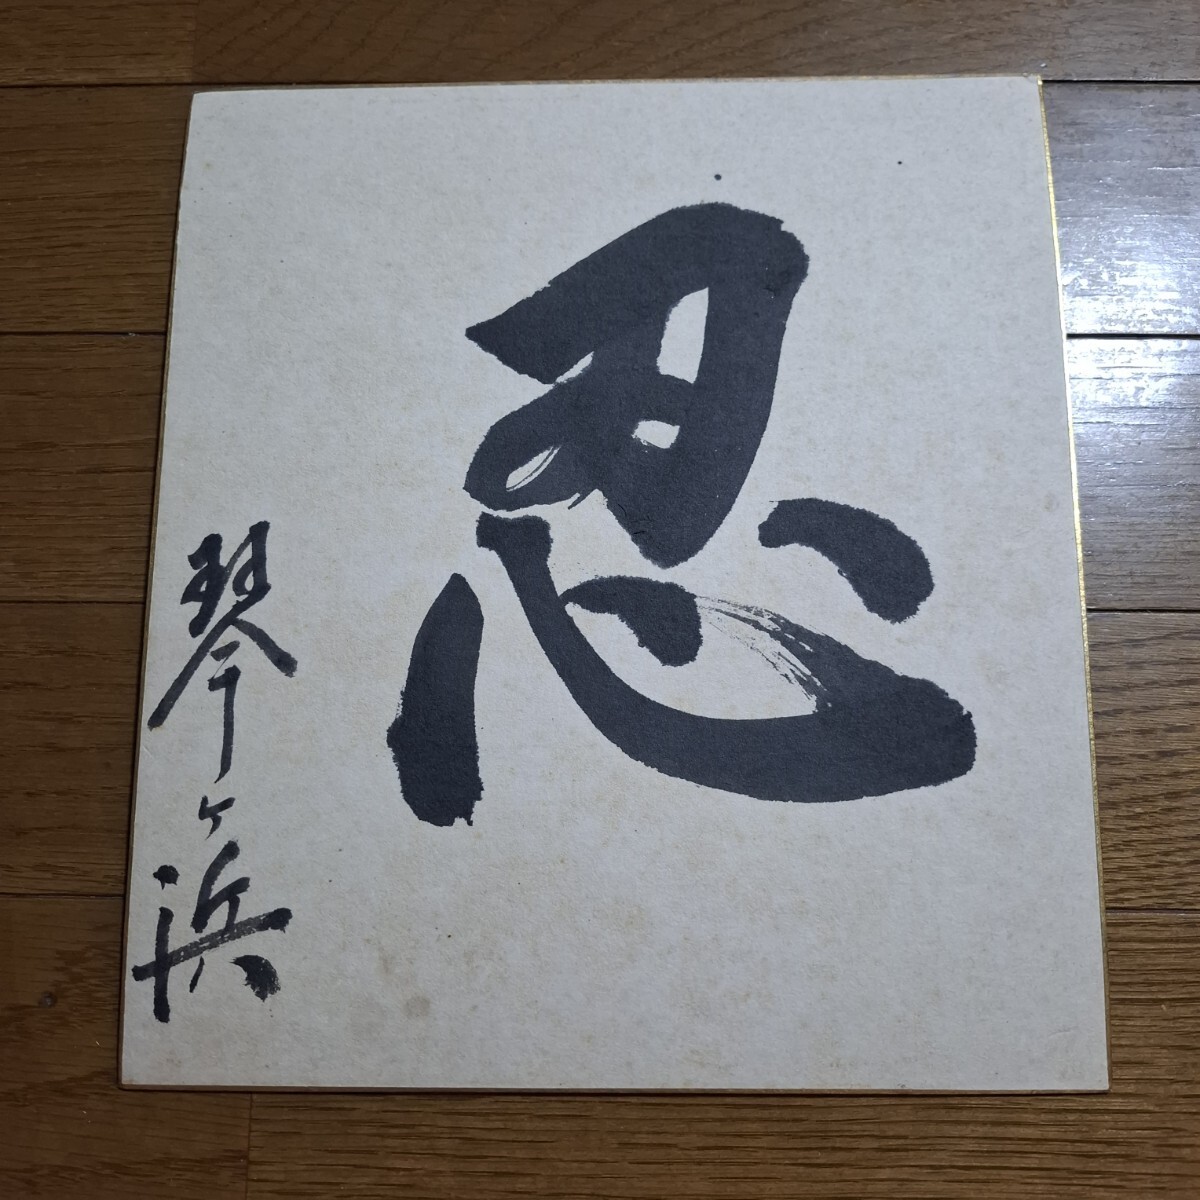 忍
琴ヶ浜